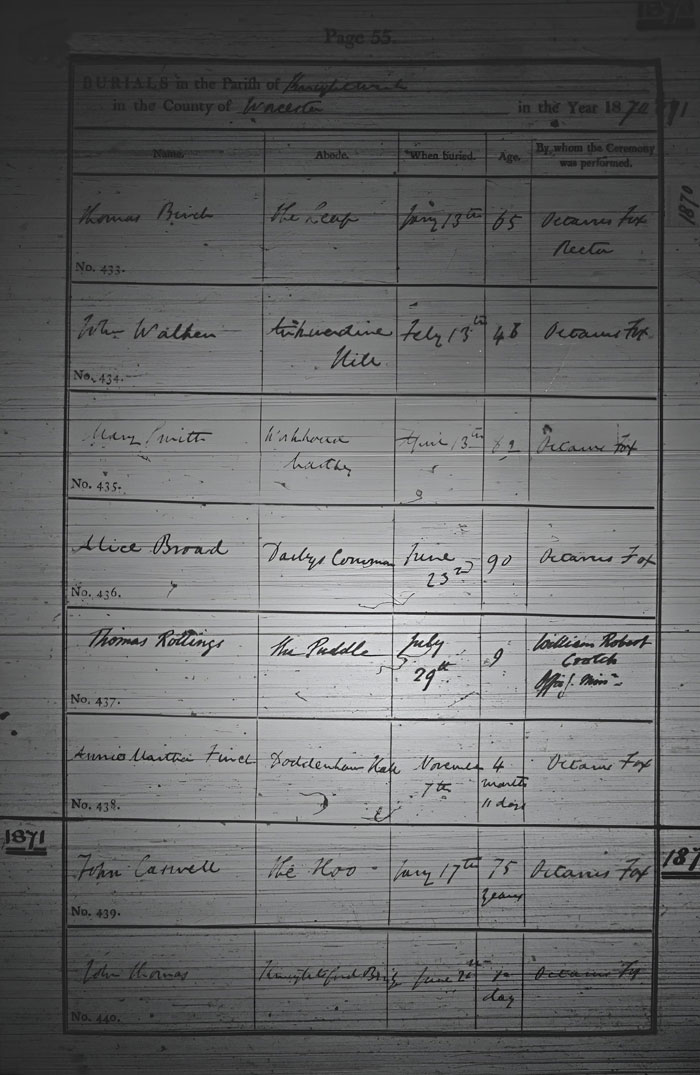 Page 55.
BURIALS in the Parish of Knightwick
in the County of Worcester in the Year 1870 71
Name. Abode. When buried. Age. By whom the Ceremony was performed.
1870
Thomas Birch The Leap Jany 13th 65 Octavius Fox
Rector
No. 433.
John Walker Ankerdine Feby 13th 48 Octavius Fox
Hill
No. 434.
Mary Smith Workhouse April 13th 82 Octavius Fox
Martley
No. 435.
Alice Broad Darbys Common June 90 Octavius Fox
23rd
No. 436.
Thomas Rollings The Puddle July 9 William Robert
29th Crotch
Offg. Minr
No. 437.
Annie Martha Finch Doddenham Hall November 4 Octavius Fox
7th months
11 days
No. 438.
1871
John Caswell The Hoo Jany 17th 75 Octavius Fox
years
187
No. 439.
John Thomas Knightsford Bridg June Octavius Fox
day
No. 440.